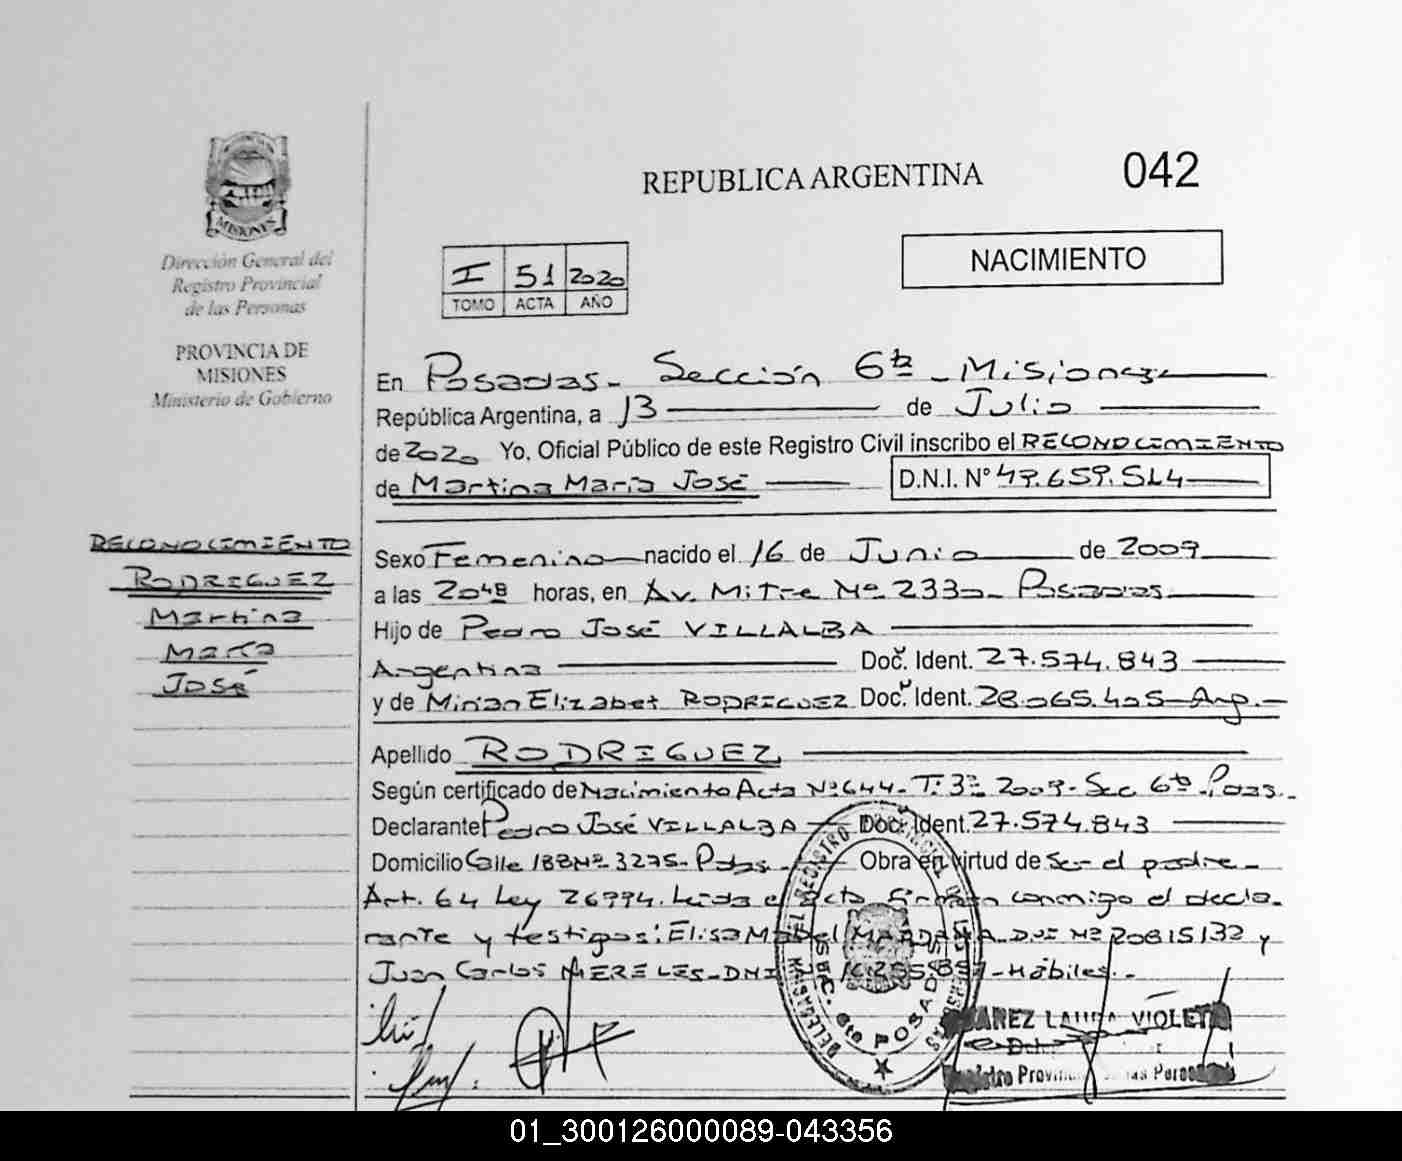 MISIONES
Dirección General del
Registro Provincial
de las Personas
PROVINCIA DE
MISIONES
Ministerio de Gobierno
REPUBLICA ARGENTINA
042
NACIMIENTO
I 51 2020
TOMO ACTA AÑO
En Posadas - Sección 6ta - Misiones
República Argentina, a 13 de Julio
de 2020 Yo. Oficial Público de este Registro Civil inscribo el RECONOCIMIENTO
de Martina María José D.N.I. N° 49.659.514
Sexo Femenino nacido el 16 de Junio de 2009
a las 20 48 horas, en Av. Mitre Nº 2330 - Posadas
Hijo de Pedro José VILLALBA
Argentina Doc. Ident. 27.574.843
y de Mirian Elizabet RODRIGUEZ Doc. Ident. 28.065.405 - Arg. -
Apellido RODRIGUEZ
Según certificado de Nacimiento Acta Nº 644 - T: 3º 2009 - Sec 6ta - Pdas. -
Declarante Pedro José VILLALBA Doc. Ident. 27.574.843
Domicilio Calle 188 Nº 3275 - Pdas - Obra en virtud de Ser el padre -
Art. 64 Ley 26994. Leída el Acta firman conmigo el decla-
rante y testigos: Elisa Mabel DNI Nº 20815132 y
Juan Carlos MERELES - DNI - Hábiles. -
RECONOCIMIENTO
RODRIGUEZ
Martina
María
José
DELEGACION DEL REGISTRO PROVINCIAL DE LAS PERSONAS
SEC. 6ta POSADAS
LAURA VIOLETA
Registro Provincial de las Personas
01_300126000089-043356